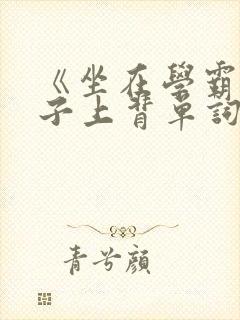 《坐在學霸
子上背單詞
青兮顏